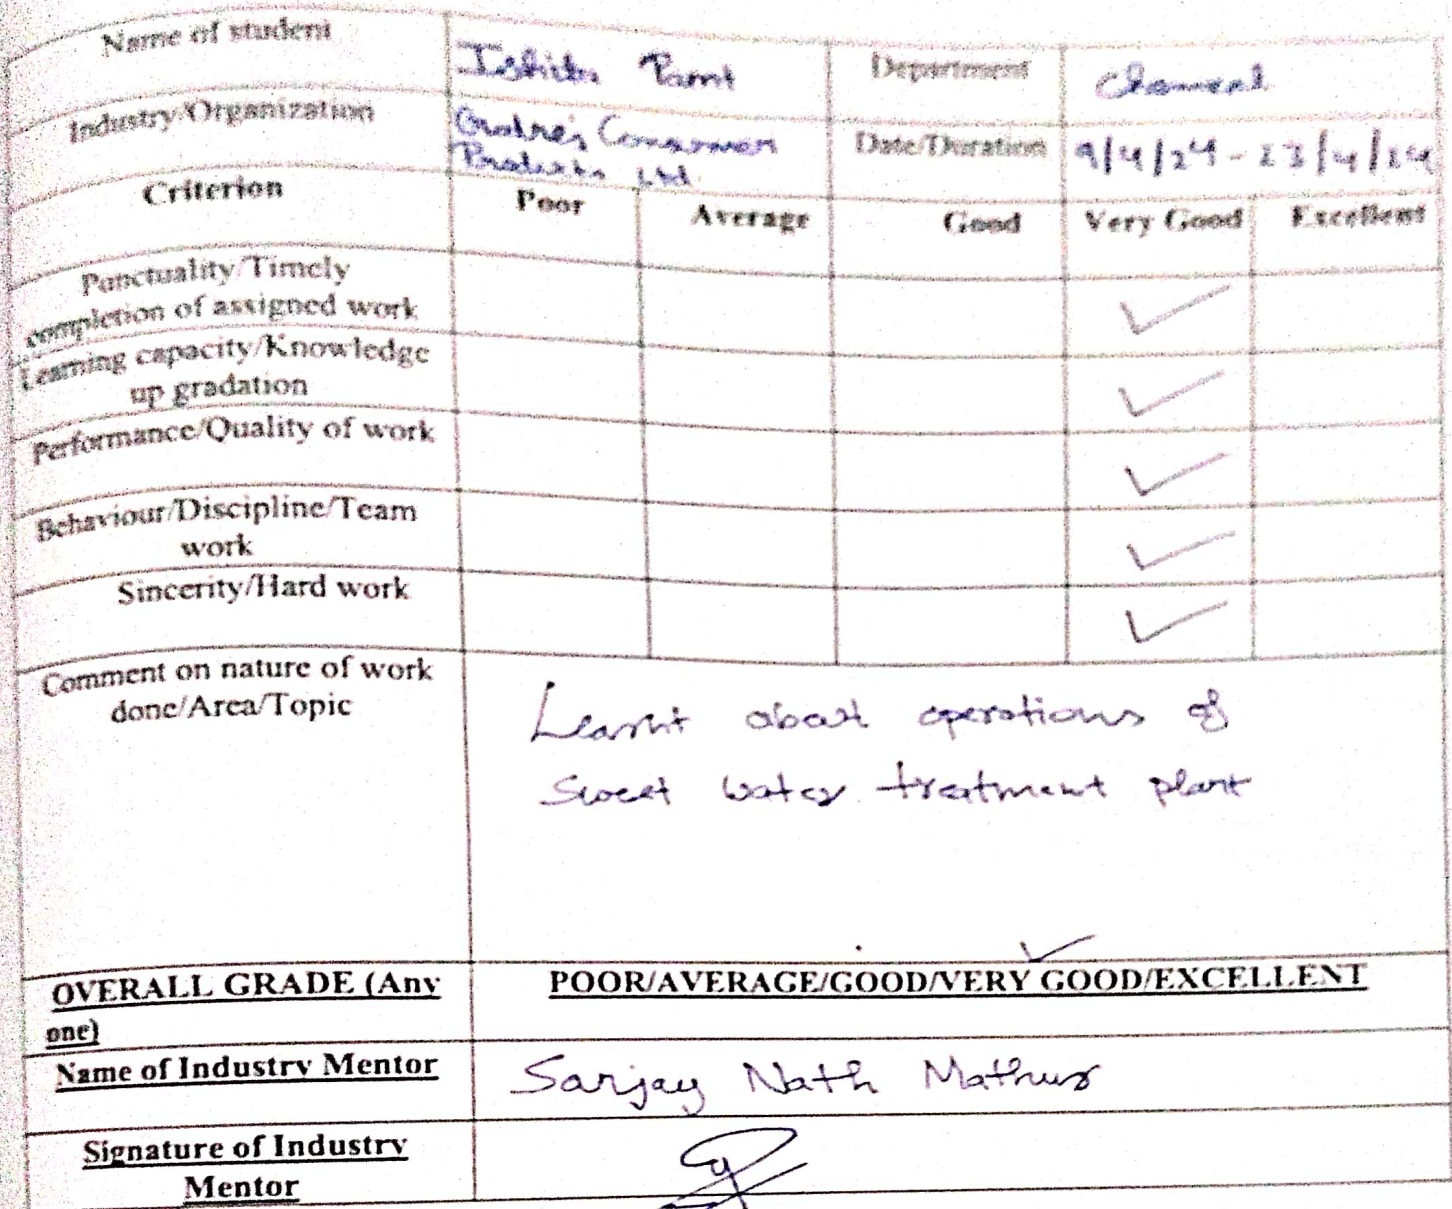 Name of student Ishita Pant Department Chemical
Industry/Organization Godrej Consumer Date/Duration 9/4/24 - 23/4/24
Products Ltd.
Criterion Poor Average Good Very Good Excellent
Punctuality/Timely
completion of assigned work ✓
Learning capacity/Knowledge
up gradation ✓
Performance/Quality of work ✓
Behaviour/Discipline/Team
work ✓
Sincerity/Hard work ✓
Comment on nature of work
done/Area/Topic
Learnt about operations of
Sweet water treatment plant
OVERALL GRADE (Any
one)
POOR/AVERAGE/GOOD/VERY GOOD/EXCELLENT
Name of Industry Mentor Sanjay Nath Mathur
Signature of Industry
Mentor